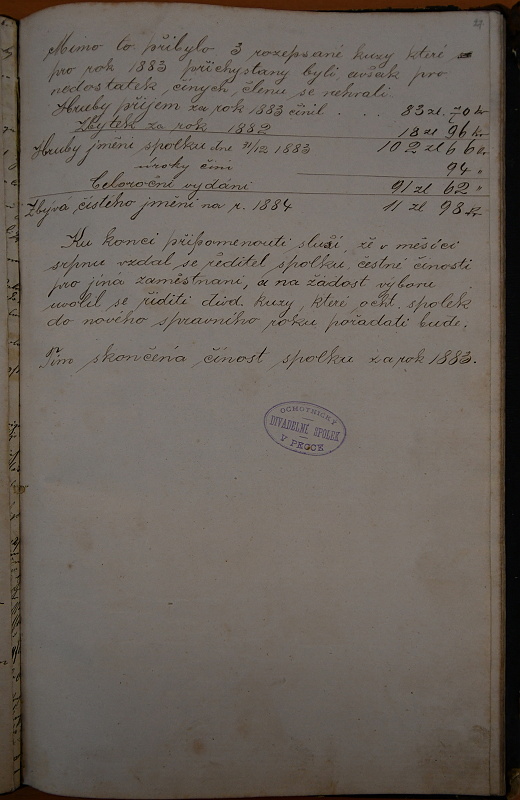 Mimo to přibylo 3 rozepsané kuzy které
pro rok 1883 přichystany byli, avšak pro
nedostatek činých členu se nehráli.
Hruby přijem za rok 1883 činil . . . 83 zl. 70 kr
Zbytek za rok 1882 18 zl 96 kr
Hruby jměni spolku dne 31/12 1883 102 zl 66 kr
úroky čini 94 "
Celoročni vydáni 91 zl 62 "
Zbývá čistého jměni na r. 1884 11 zl 98 kr
Ku konci připomenouti sluší, že v měsici
srpnu vzdal se ředitel spolku, čestné činosti
pro jiná zaměstnani, a na žádost vyboru
uvolil se řiditi divd. kuzy, které ocht. spolek
do nového spravniho roku pořádati bude.
Tim skončena činost spolku za rok 1883.
OCHOTNICKÝ
DIVADELNÍ SPOLEK
V PECCE